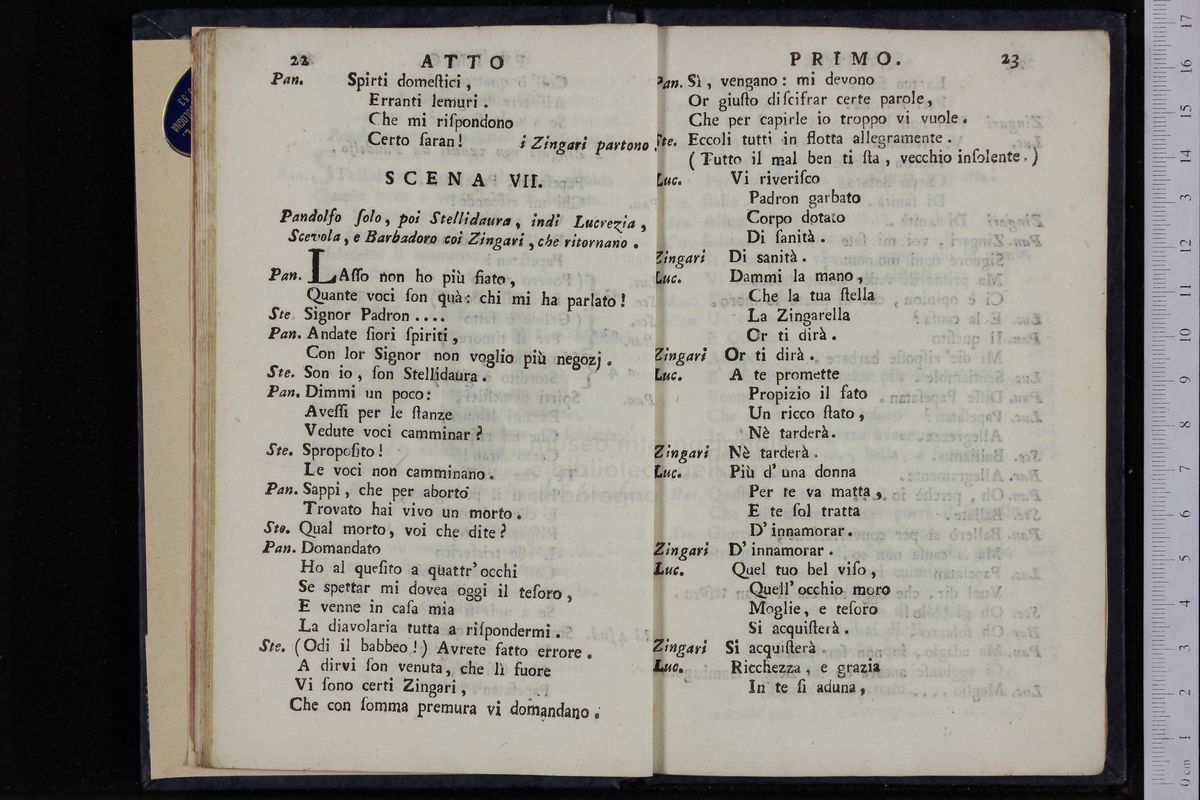 22 ATTO
Pan. Spirti domeſtici,
Erranti lemuri.
Che mi riſpondono
Certo ſaran! i Zingari partono
SCENA VII.
Pandolfo ſolo, poi Stellidaura, indi Lucrezia,
Scevola, e Barbadoro coi Zingari, che ritornano.
Pan. LAſſo non ho più fiato,
Quante voci ſon quà: chi mi ha parlato!
Ste Signor Padron....
Pan. Andate ſiori ſpiriti,
Con lor Signor non voglio più negozj.
Ste. Son io, ſon Stellidaura.
Pan. Dimmi un poco:
Aveſſi per le ſtanze
Vedute voci camminar?
Ste. Spropoſito!
Le voci non camminano.
Pan. Sappi, che per aborto
Trovato hai vivo un morto.
Ste. Qual morto, voi che dite?
Pan. Domandato
Ho al queſito a quattr' occhi
Se spettar mi dovea oggi il teſoro,
E venne in caſa mia
La diavolaria tutta a riſpondermi.
Ste. (Odi il babbeo!) Avrete fatto errore.
A dirvi ſon venuta, che lì fuore
Vi ſono certi Zingari,
Che con ſomma premura vi domandano.
PRIMO. 23
Pan. Sì, vengano: mi devono
Or giuſto diſcifrar certe parole,
Che per capirle io troppo vi vuole.
Ste. Eccoli tutti in flotta allegramente.
(Tutto il mal ben ti ſta, vecchio inſolente.)
Luc. Vi riveriſco
Padron garbato
Corpo dotato
Di ſanità.
Zingari Di sanità.
Luc. Dammi la mano,
Che la tua ſtella
La Zingarella
Or ti dirà.
Zingari Or ti dirà.
Luc. A te promette
Propizio il fato
Un ricco ſtato,
Nè tarderà.
Zingari Nè tarderà.
Luc. Più d' una donna
Per te va matta,
E te ſol tratta
D' innamorar.
Zingari D' innamorar.
Luc. Quel tuo bel viſo,
Quell' occhio moro
Moglie, e teſoro
Si acquiſterà.
Zingari Si acquiſterà
Luc. Ricchezza, e grazia
In te ſi aduna,